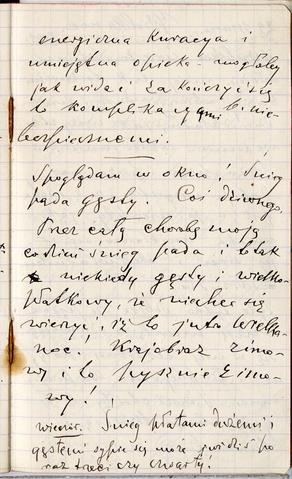 energiczna kuracya i
umiejętna opieka – mogłaby
jak widać zakończyć się
to komplikacyami b. nie-
bezpiecznemi.
Spoglądam w okno! Śnieg
pada gęsty. Coś dziwnego.
Przez całą chorobę moją
codzień śnieg pada i to tak
niekiedy gęsty i wielko-
płatkowy, że niechce się
wierzyć, iż to jutro Wielka-
noc! Krajobraz zimo-
wy i to pysznie zimo-
wy!
wieczór. Śnieg płatami dużemi i
gęstemi sypie się może już dziś po
raz trzeci czy czwarty!